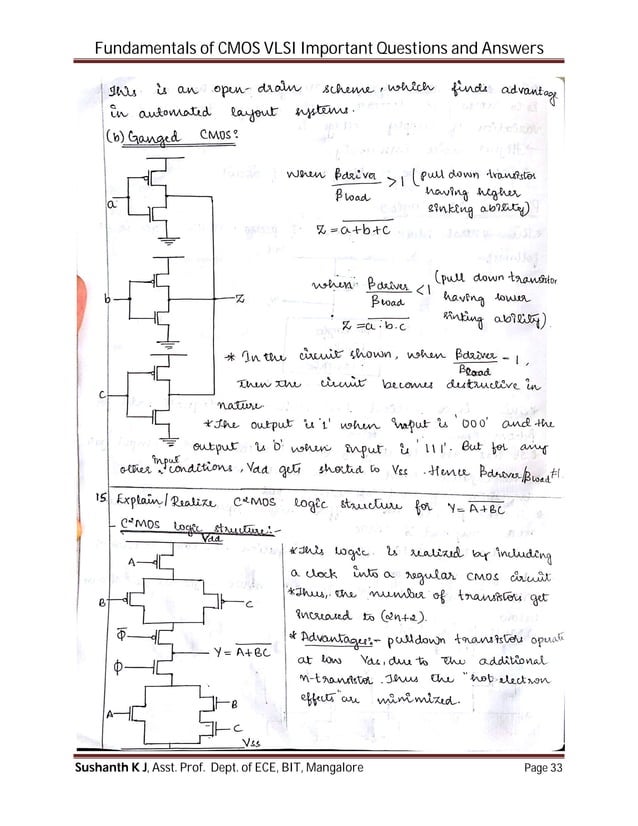 Fundamentals of CMOS VLSI Important Questions and Answers
This is an open-drain scheme, which finds advantage
in automated layout systems.
(b) Ganged CMOS:
a
b
c
Z
when βdriver/βload > 1 (pull down transistor
having higher
sinking ability)
Z = \overline{a+b+c}
when βdriver/βload < 1 (pull down transistor
having lower
sinking ability)
Z = \overline{a.b.c}
* In the circuit shown, when βdriver/βload = 1,
then the circuit becomes destructive in
nature.
* The output is '1' when input is '000' and the
output is '0' when input is '111'. But for any
other input conditions, Vdd gets shorted to Vss. Hence βdriver/βload ≠ 1.
15 Explain/Realize C²MOS logic structure for Y = \overline{A+BC}
- C²MOS logic structure:-
Vdd
A
B
C
\overline{Φ}
Y = \overline{A+BC}
Φ
A
B
C
Vss
* This logic is realized by including
a clock into a regular CMOS circuit
* Thus, the number of transistors get
increased to (2n+2).
* Advantages:- pulldown transistors operate
at low Vds, due to the additional
n-transistor. Thus the "hot electron
effects" are minimized.
Sushanth K J, Asst. Prof. Dept. of ECE, BIT, Mangalore
Page 33